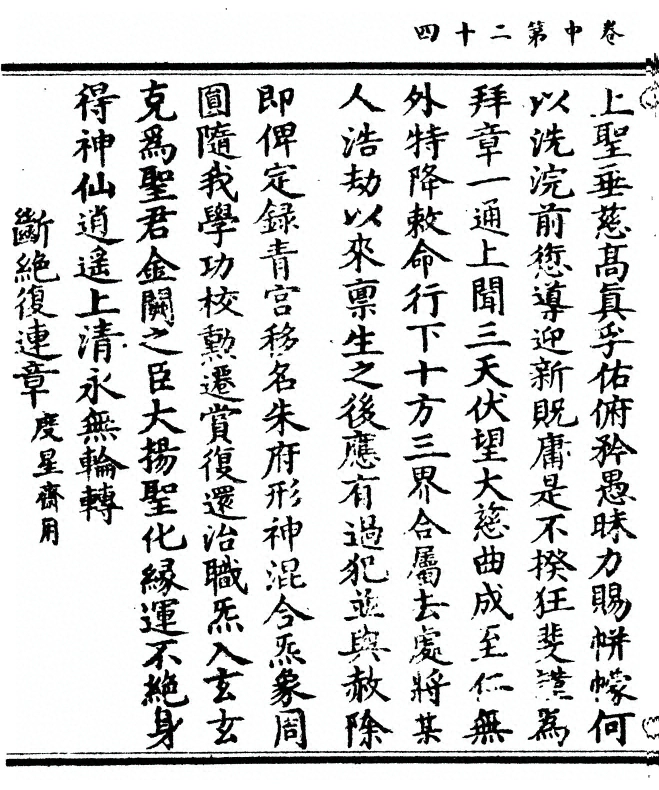 卷中第二十四
上聖垂慈髙眞孚佑俯矜愚昧力賜帡幪何
以洗浣前愆導迎新貺庸是不揆狂斐謹爲
拜章一通上聞三天伏望大慈曲成至仁無
外特降敕命行下十方三界合屬去處將某
人浩劫以來禀生之後應有過犯並與赦除
即俾定録青宫移名朱府形神混合炁象周
圓隨我學功校勲遷賞復還治職炁入玄玄
克爲聖君金闕之臣大揚聖化緣運不絕身
得神仙逍遥上清永無輪轉
斷絕復連章 度星齋用